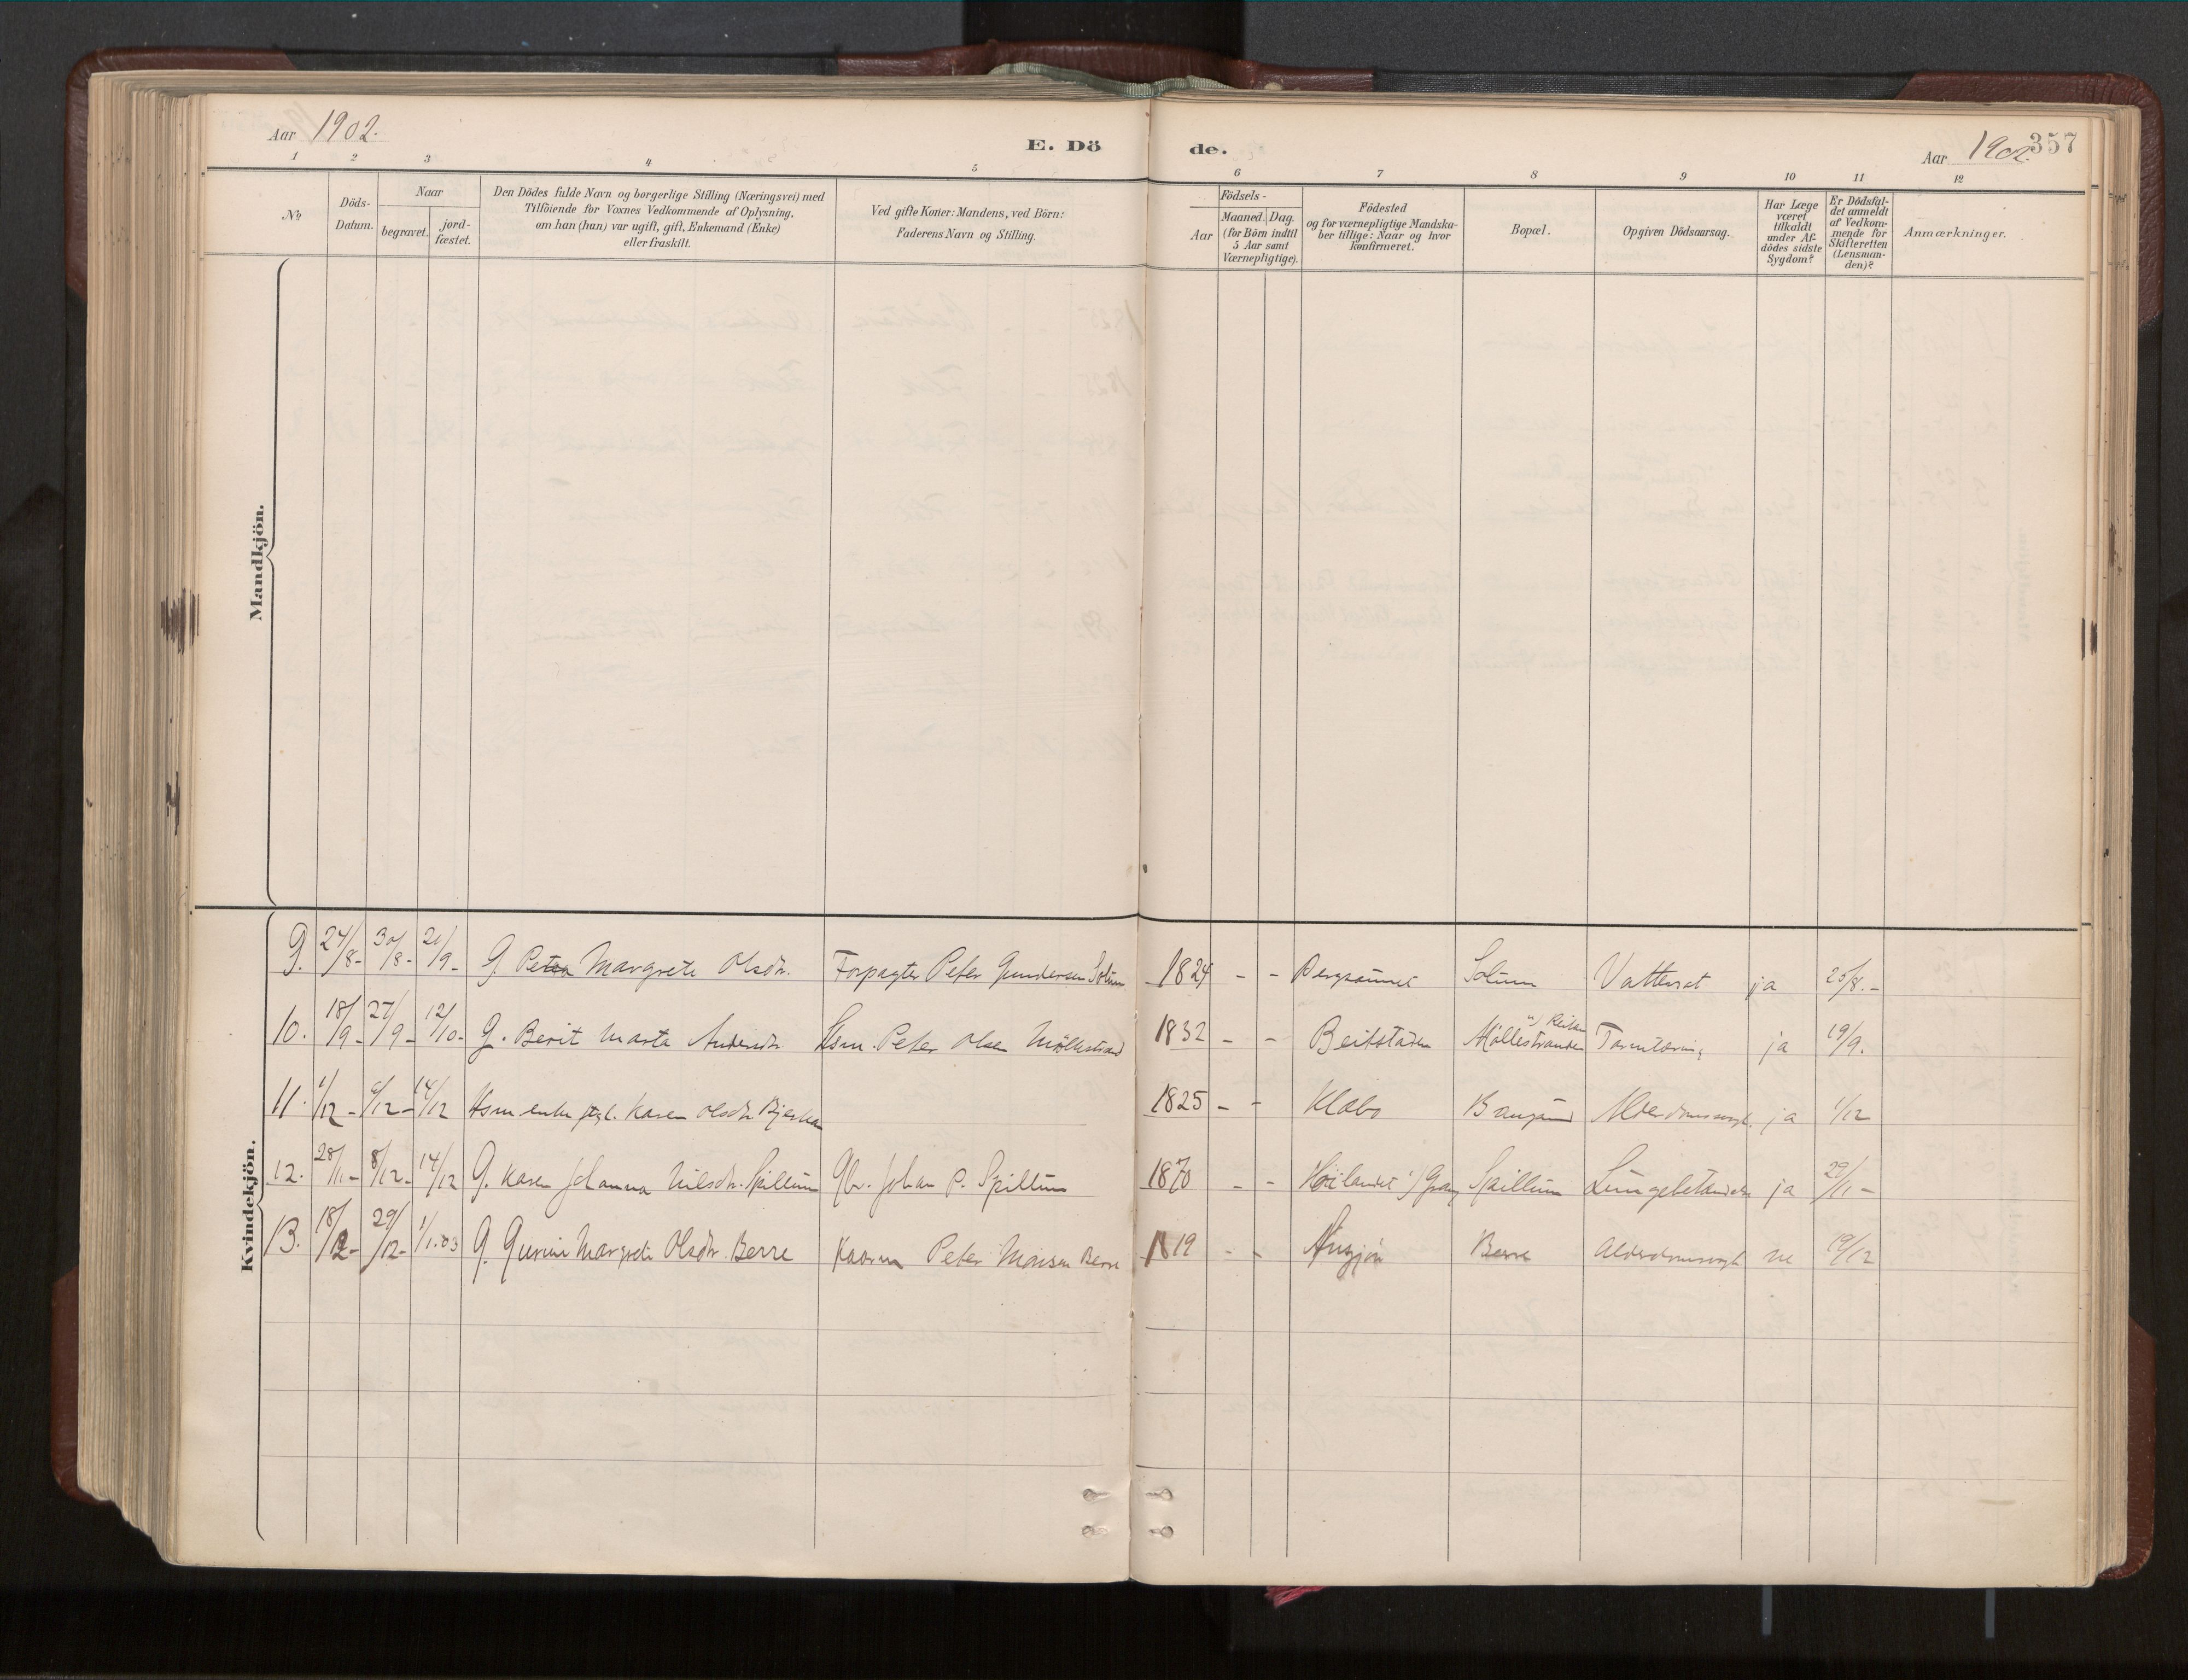 Aar 1902.
E. Dö
de.
Aar 1902.
357
1 2 3 4 5 6 7 8 9 10 11 12
No
Döds-
Datum.
Naar
begravet.
jord-
fæstet.
Den Dödes fulde Navn og borgerlige Stilling (Næringsvei) med
Tilföiende for Voxnes Vedkommende af Oplysning,
om han (hun) var ugift, gift, Enkemand (Enke)
eller fraskilt.
Ved gifte Koner: Mandens, ved Börn:
Faderens Navn og Stilling.
Födsels-
Aar
Maaned. Dag.
(for Börn indtil
5 Aar samt
Værnepligtige).
Födested
og for værnepligtige Mandska-
ber tillige: Naar og hvor
konfirmeret.
Bopæl.
Opgiven Dödsaarsag.
Har Læge
været
tilkaldt
under Af-
dödes sidste
Sygdom?
Er Dödsfal-
det anmeldt
af Vedkom-
mende for
Skifteretten
(Lensman-
den)?
Anmærkninger.
Mandkjön.
Kvindekjön.
9. 24/8- 30/8- 21/9- G Petra Margrete Olsdtr. Forpagter Peter Gundersen Solum 1824 - - Solum Vattersot ja 25/8.-
10. 18/9- 27/9- 12/10- G. Berit Marta Andersdtr Hsm. Peter Olsen Möllestrand 1832 - - Beitstaden Möllestranden Tarmtæring ja 19/9.
11. 1/12- 6/12- 14/12 Hsm enke Karen Olsdtr 1825 - - Klæbo Bangsund Alderdomssvagh. ja 1/12
12. 28/11- 8/12- 14/12 G. Karen Johanna Nilsdtr. Spillum Gbr. Johan P. Spillum 1870 - - Höilandet Spillum Lungebetændelse ja 29/11-
13. 18/12- 29/12- 1/1.03 G. Gurine Margrete Olsdtr. Berre Kaarm Peter Monsen Berre 1819 - - Berre Alderdomssvagh ne 19/12